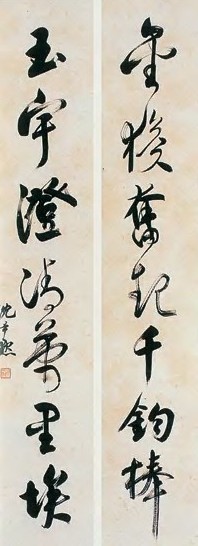 金猴奮起千鈞棒
玉宇澄清萬里埃
沈尹默